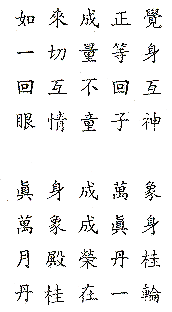 如來成正覺
一切量等身
回互不回互
眼情童子神
眞身成萬象
萬象成眞身
月殿榮丹桂
丹桂在一輪